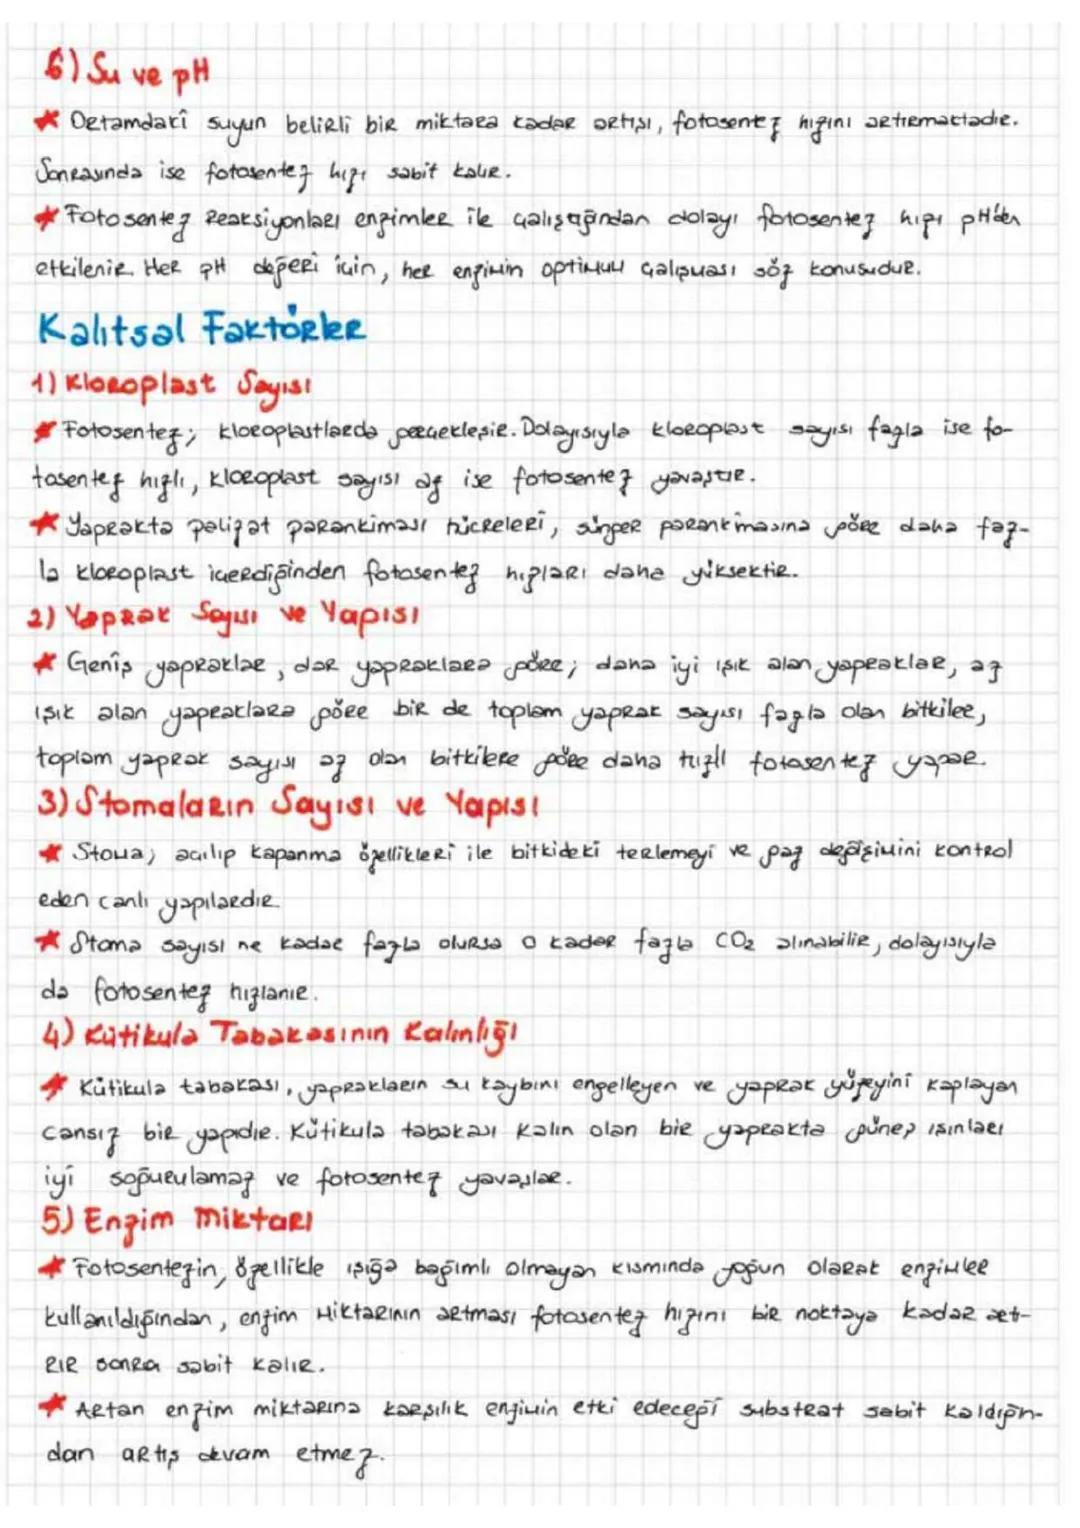 6) Su ve pH
★ Ortamdaki suyun belirli bir miktara kadar artışı, fotosentez hızını artırmaktadır.
Sonrasında ise fotosentez hızı sabit kalır.
★ Fotosentez Reaksiyonları enzimler ile çalıştığından dolayı fotosentez hızı pH'dan
etkilenir. Her pH değeri için, her enzimin optimum çalışması söz konusudur.
Kalıtsal Faktörler
1) Kloroplast Sayısı
★ Fotosentez; kloroplastlarda gerçekleşir. Dolayısıyla kloroplast sayısı fazla ise fo-
tosentez hızlı, kloroplast sayısı az ise fotosentez yavaştır.
★ Yaprakta palizat parankiması hücreleri, sünger parankimasına göre daha faz-
la kloroplast içerdiğinden fotosentez hızları daha yüksektir.
2) Yaprak Sayısı ve Yapısı
★ Geniş yapraklar, dar yapraklara göre; daha iyi ışık alan yapraklar, az
ışık alan yapraklara göre bir de toplam yaprak sayısı fazla olan bitkiler,
toplam yaprak sayısı az olan bitkilere göre daha hızlı fotosentez yapar.
3) Stomaların Sayısı ve Yapısı
★ Stoma; açılıp kapanma özellikleri ile bitkideki terlemeyi ve gaz değişimini kontrol
eden canlı yapılardır
★ Stoma sayısı ne kadar fazla olursa o kadar fazla CO₂ alınabilir, dolayısıyla
da fotosentez hızlanır.
4) Kütikula Tabakasının Kalınlığı
★ Kütikula tabakası, yaprakların su kaybını engelleyen ve yaprak yüzeyini kaplayan
cansız bir yapıdır. Kütikula tabakası kalın olan bir yaprakta güneş ışınları
iyi soğurulamaz ve fotosentez yavaşlar.
5) Enzim Miktarı
★ Fotosentezin, özellikle ışığa bağımlı olmayan kısmında yoğun olarak enzimler
kullanıldığından, enzim miktarının artması fotosentez hızını bir noktaya kadar art-
rır sonra sabit kalır.
★ Artan enzim miktarına karşılık enzimin etki edeceği substrat sabit kaldığın-
dan artış devam etmez.